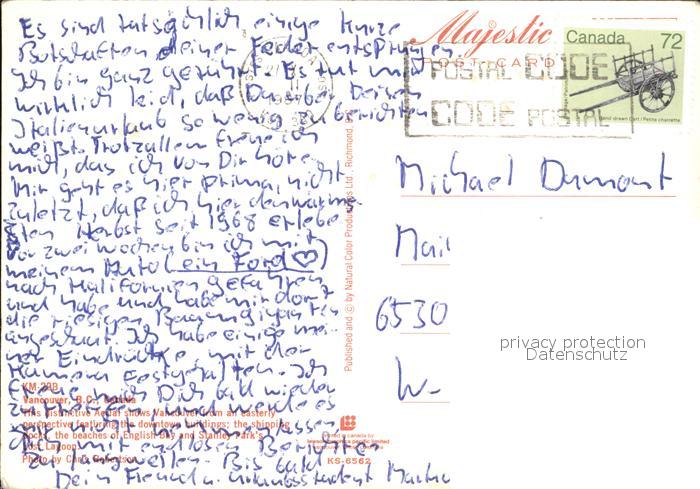 Es sind tatsächlich einige kurze
Botschaften deiner Feder entsprungen.
Ich bin ganz gerührt. Es tut mir
wirklich leid, daß Du über Deinen
Italienurlaub so wenig zu berichten
weißt. Trotzallem freue ich
mich, das ich von Dir höre.
Mir geht es hier prima, nicht
zuletzt, daß ich hier den wärm-
sten Herbst seit 1968 erlebe.
Vor zwei Wochen bin ich mit
meinem Auto (ein Ford ♡)
nach Kalifornien gefahren
und habe und habe mir dort
die riesigen Baumgiganten
angeschaut. Ich habe einige mei-
ner Eindrücke mit der
Kamera festgehalten. Ich
freue mich Dich bald wieder
zu und werde es
mir nicht nehmen lassen
Dich mit endlosen Berichten
zu langweilen. Bis bald
Dein Freund u. Urlaubsstudent Martin
KM-29B
Vancouver, B.C., Canada
This distinctive Aerial shows Vancouver from an easterly
perspective featuring the downtown buildings; the shipping
docks, the beaches of English Bay and Stanley Park's
Lost Lagoon.
Photo by Chris Robertson
Published and © by Natural Color Productions Ltd., Richmond,
Majestic
POST CARD
POSTAL CODE
CODE POSTAL
Canada 72
Hand drawn Cart / Petite charrette
Michael Dumont
Mail
6530
W-
privacy protection
Datenschutz
printed in canada by
KS-6562